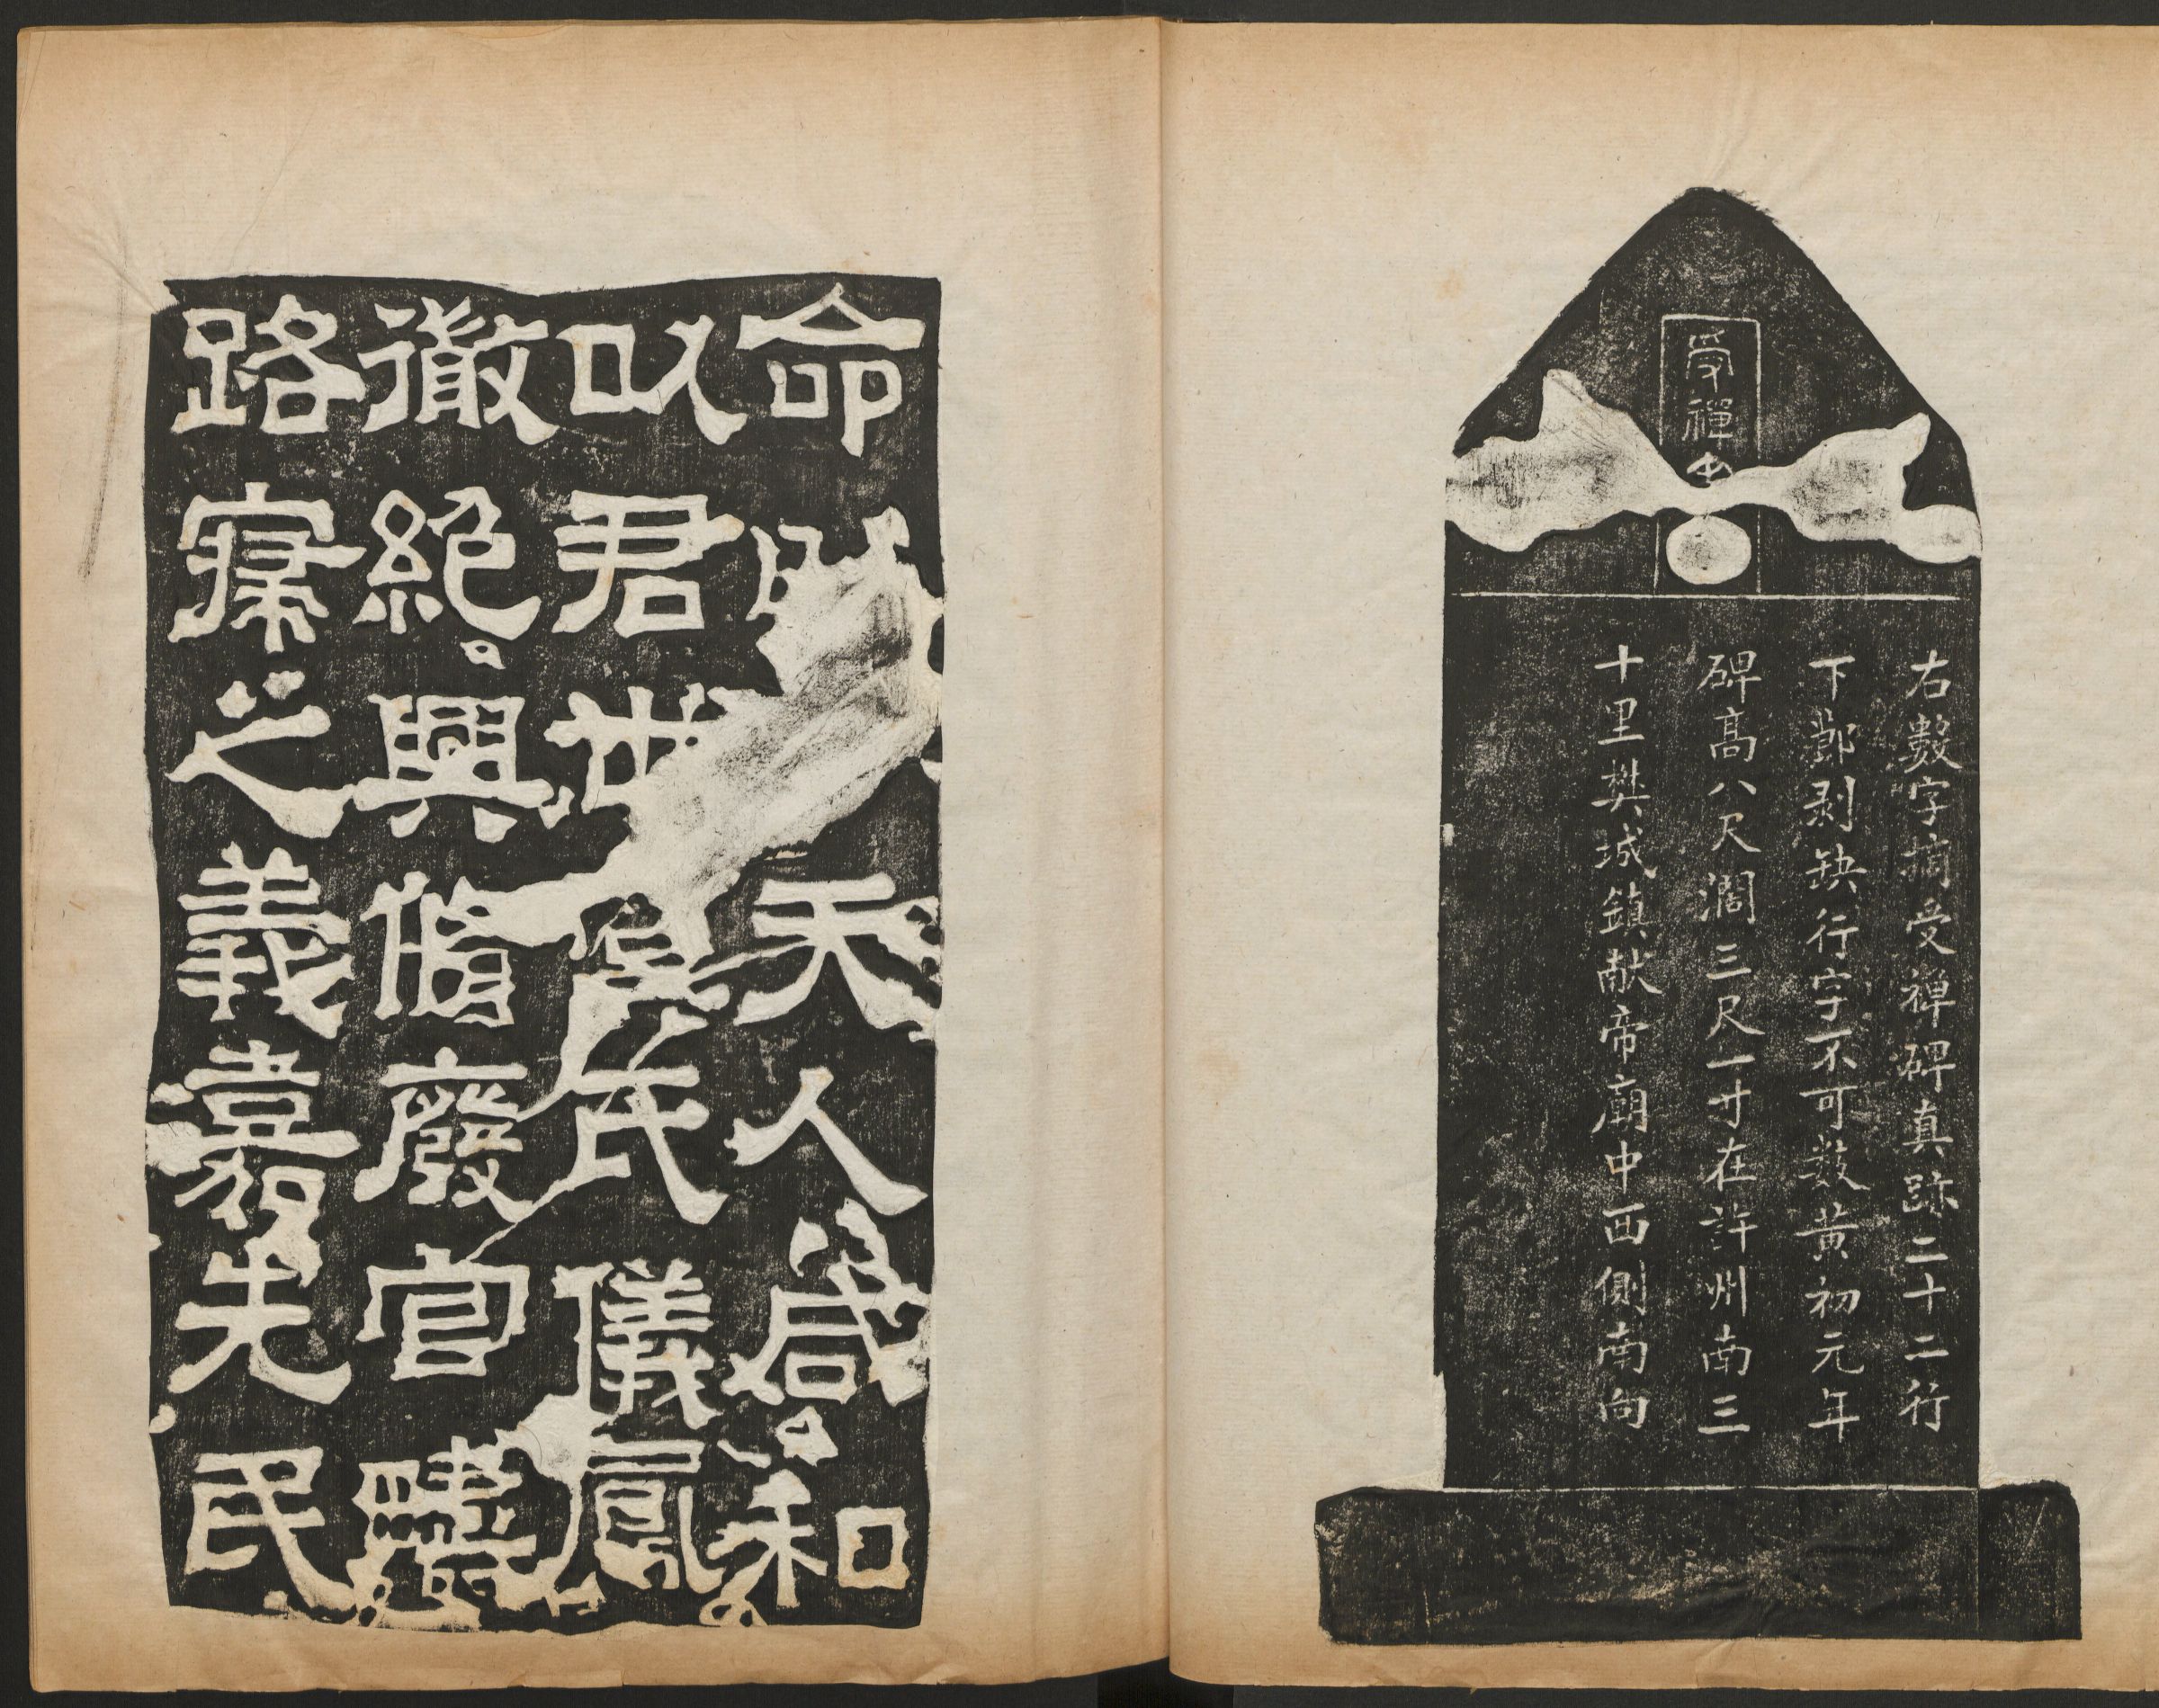 受禪
右數字摘受禪碑真跡二十二行
下鄼剥缺行字不可數黃初元年
碑高八尺濶三尺一寸在許州南三
十里樊城鎮献帝廟中西側南向
命天人咸和
以君世民儀鳳
徹絕興脩廢官
路寢之義嘉先民